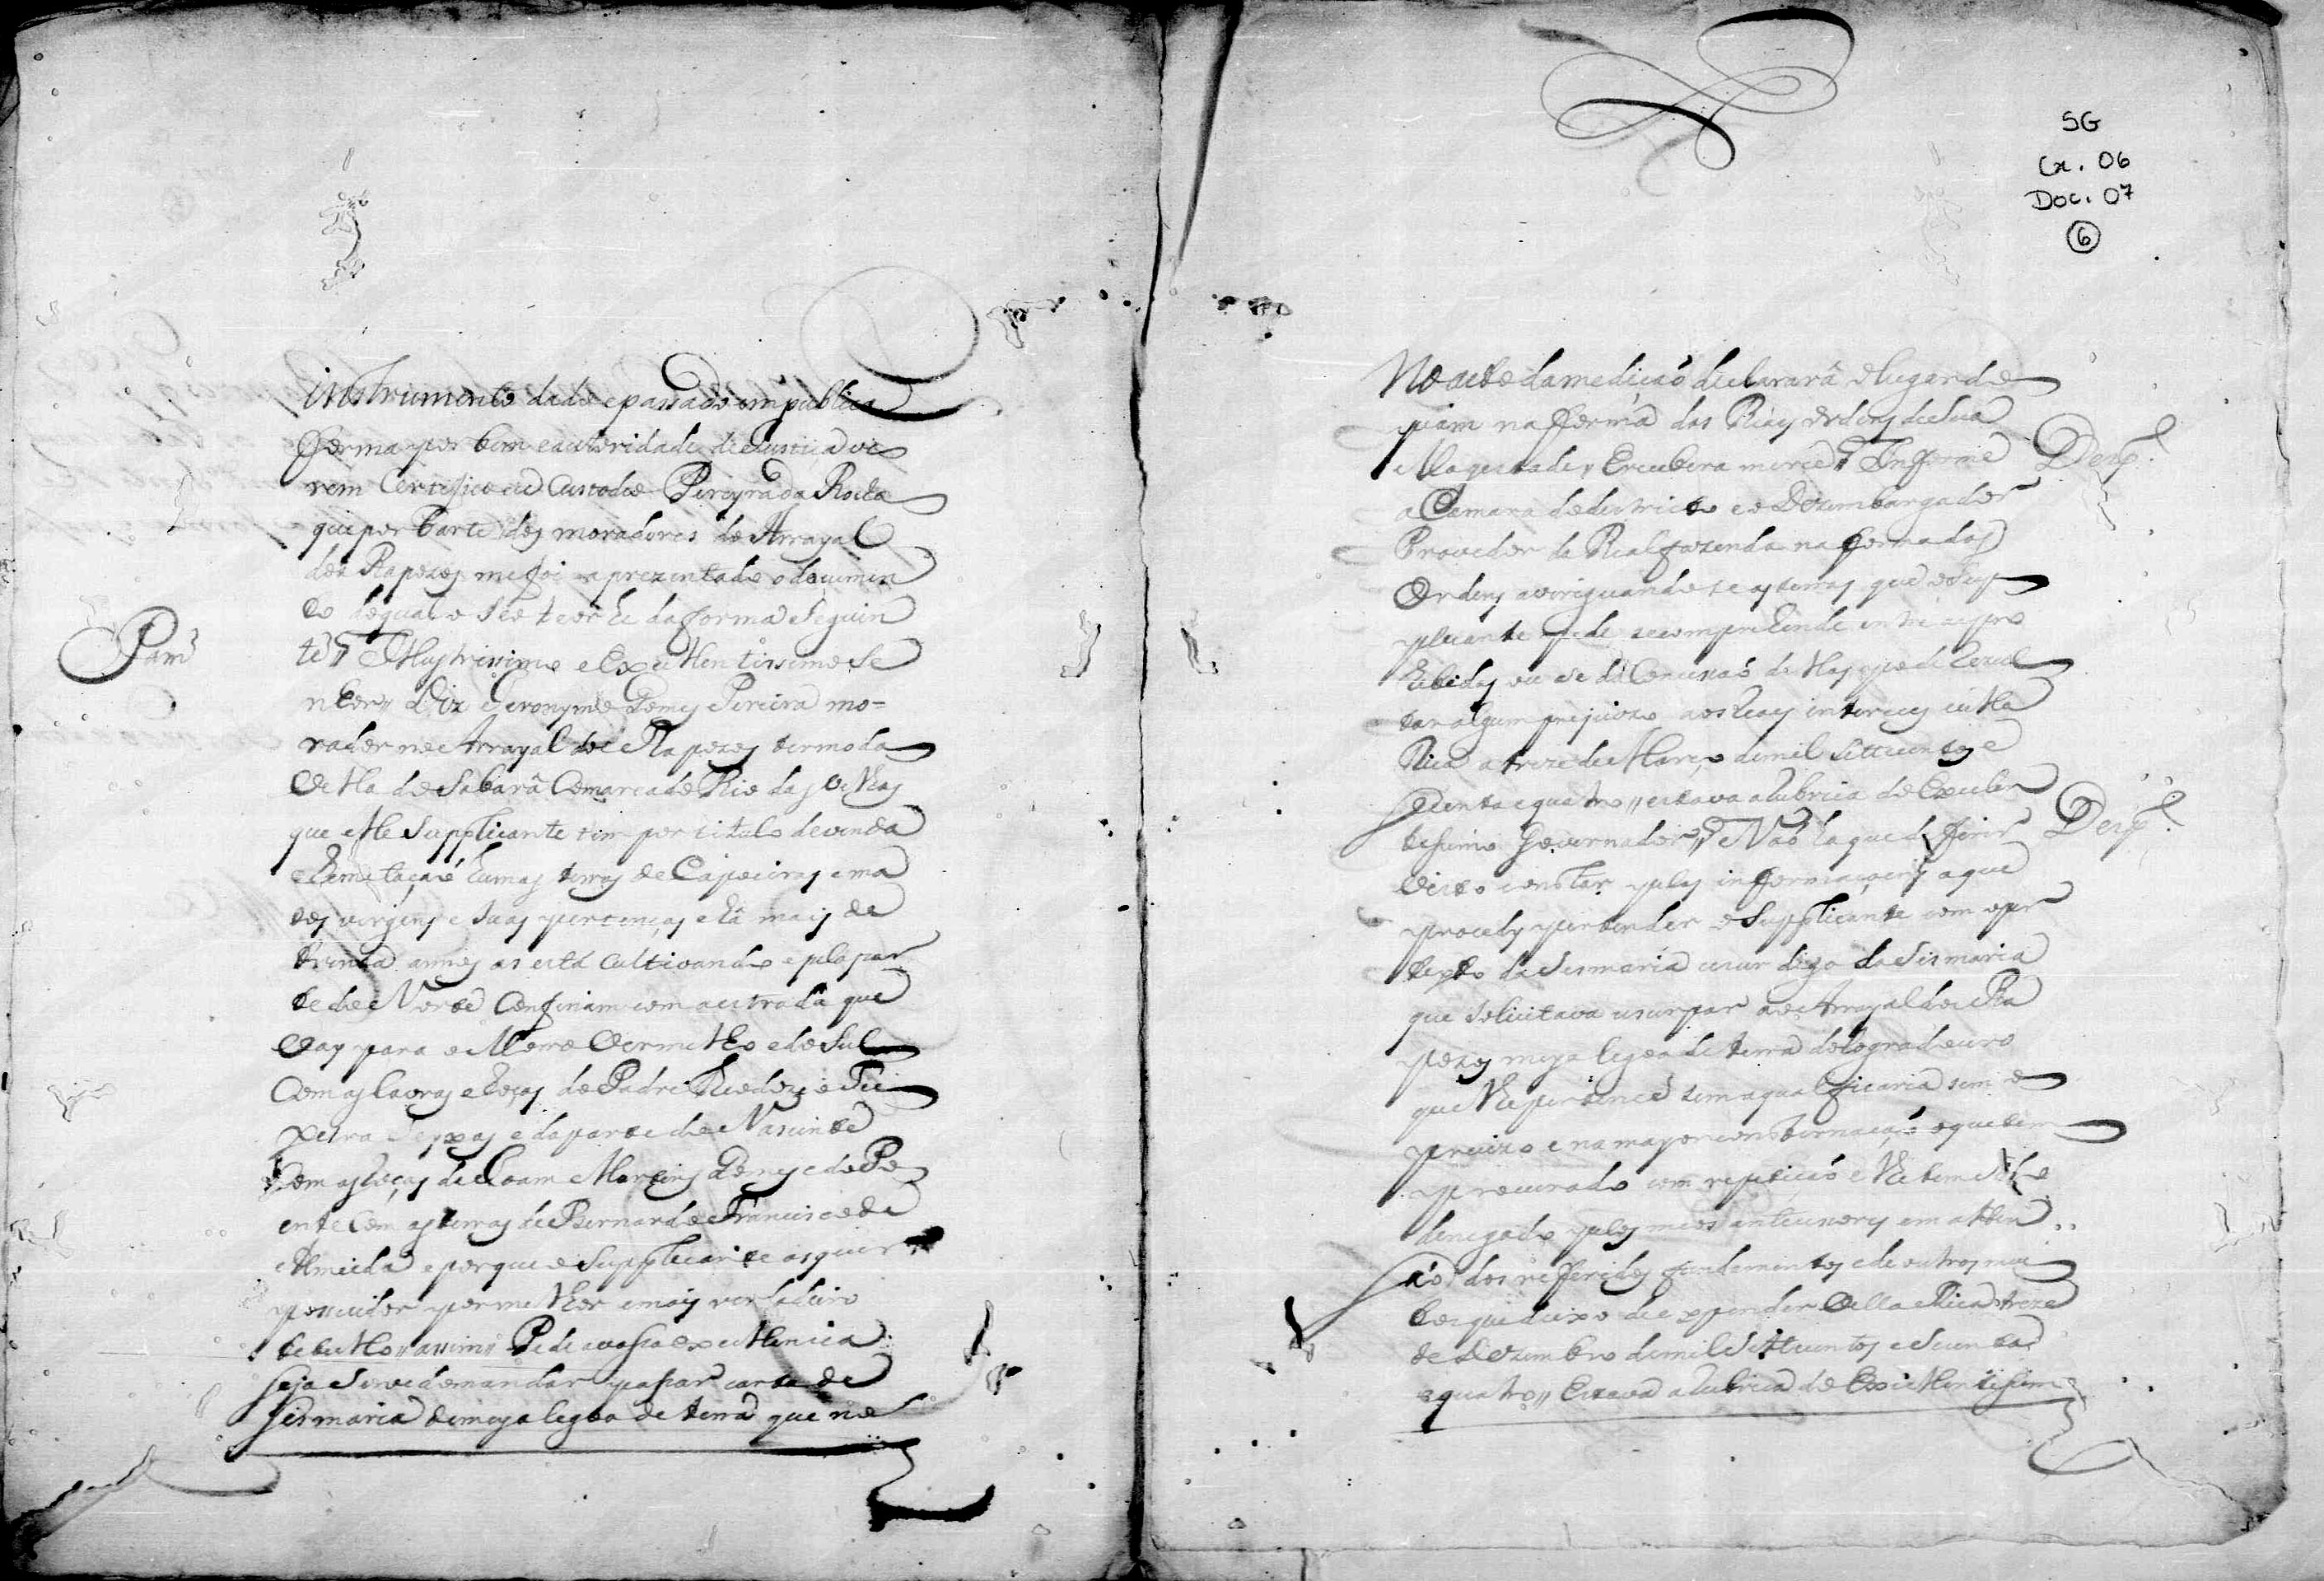 instrumento dado epassado empublica
forma por bem eautoridade de Justiça vi
rem Certifico eu Custodio Pereyra da Rocha
que por parte dos moradores do Arrayal
dos Rapozos mefoi aprezentado odocumen
to doqual o seo teor he da forma seguin
Pam
te" Illustrissimo e Excellentissimo Se
nhor" Diz Jeronymo Gomes Pereira mo=
rador no Arrayal dos Rapozos termo da
Villa do Sabará Comarca do Rio das Velhas
que elle Supplicante tem por titulo de venda
humas terras de Capoeiras ema
tos virgens e suas pertenças e há mais de
trinta annos as está Cultivando epela par
te do Norte Confinam com aestrada que
Vay para o Morro Vermelho edo Sul
Com as lavras e Roças do Padre Theodozio Tei
xeira edaparte do Nascente
Com as Roças de Joam Martins edo Po
ente Com as terras de Bernardo Francisco de
Almeida eporque o Supplicante as quer
possuidor por melhor emais verdadeiro
titullo" assim" Pede avossa excellencia
seja Servido mandar passar carta de
sismaria demeya legoa de terra que no
SG
Cx. 06
Doc. 07
6
No acto da medição declarará olugar do
piam na forma das Reays ordens de Sua
Magestade" Ereceberá mercê" Informe
Desp.º
a Camara do destricto eo Dezembargador
Provedor da Real fazenda na forma das
Ordens averiguando se as terras que o Sup
plicante pede secomprehende entre aspro
hibidas ou se da Concessaõ dellas pode rezul
tar algum prejuizo aos Reays interesses Villa
Rica a treze de Março demil Settecentos e
secenta e quatro" estava aRubrica do Excelen
tissimo Governador" Naõ ha que deferir
Desp.º
visto constar pelas informaçoens aque
procedy pertender o Supplicante com opre
texto da Sesmaria usur digo da Sismaria
que Solicitava usurpar ao Arrayal dos Ra
pozos meya legoa de terra dologradouro
que lhe pertence sem aqual ficaria sem o
precizo e na mayor consternaçaõ oque tem
procurado com repetiçaõ e lhe tem sido
denegado pelos meos antecessores em atten
çaõ dos referidos fundamentos e de outros mui
tos que deixo de expender Villa Rica treze
de Dezembro de mil Settecentos e Secenta
e quatro" Estava aRubrica do Excellentissimo